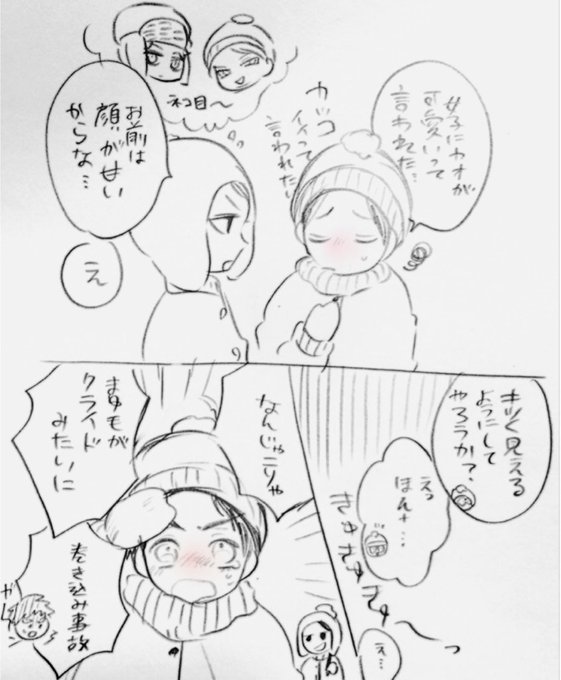 女子にカオが
可愛いって
言われた…
カッコ
イイって
言われたい
ネコ目〜
お前は
顔が甘い
からな…
え
キツく見える
ようにして
やろうか?
えっ
ほんと…
きゅきゅきゅ〜っ
え…
なんじゃこりゃ
まゆ毛が
クライド
みたいに
巻き込み事故